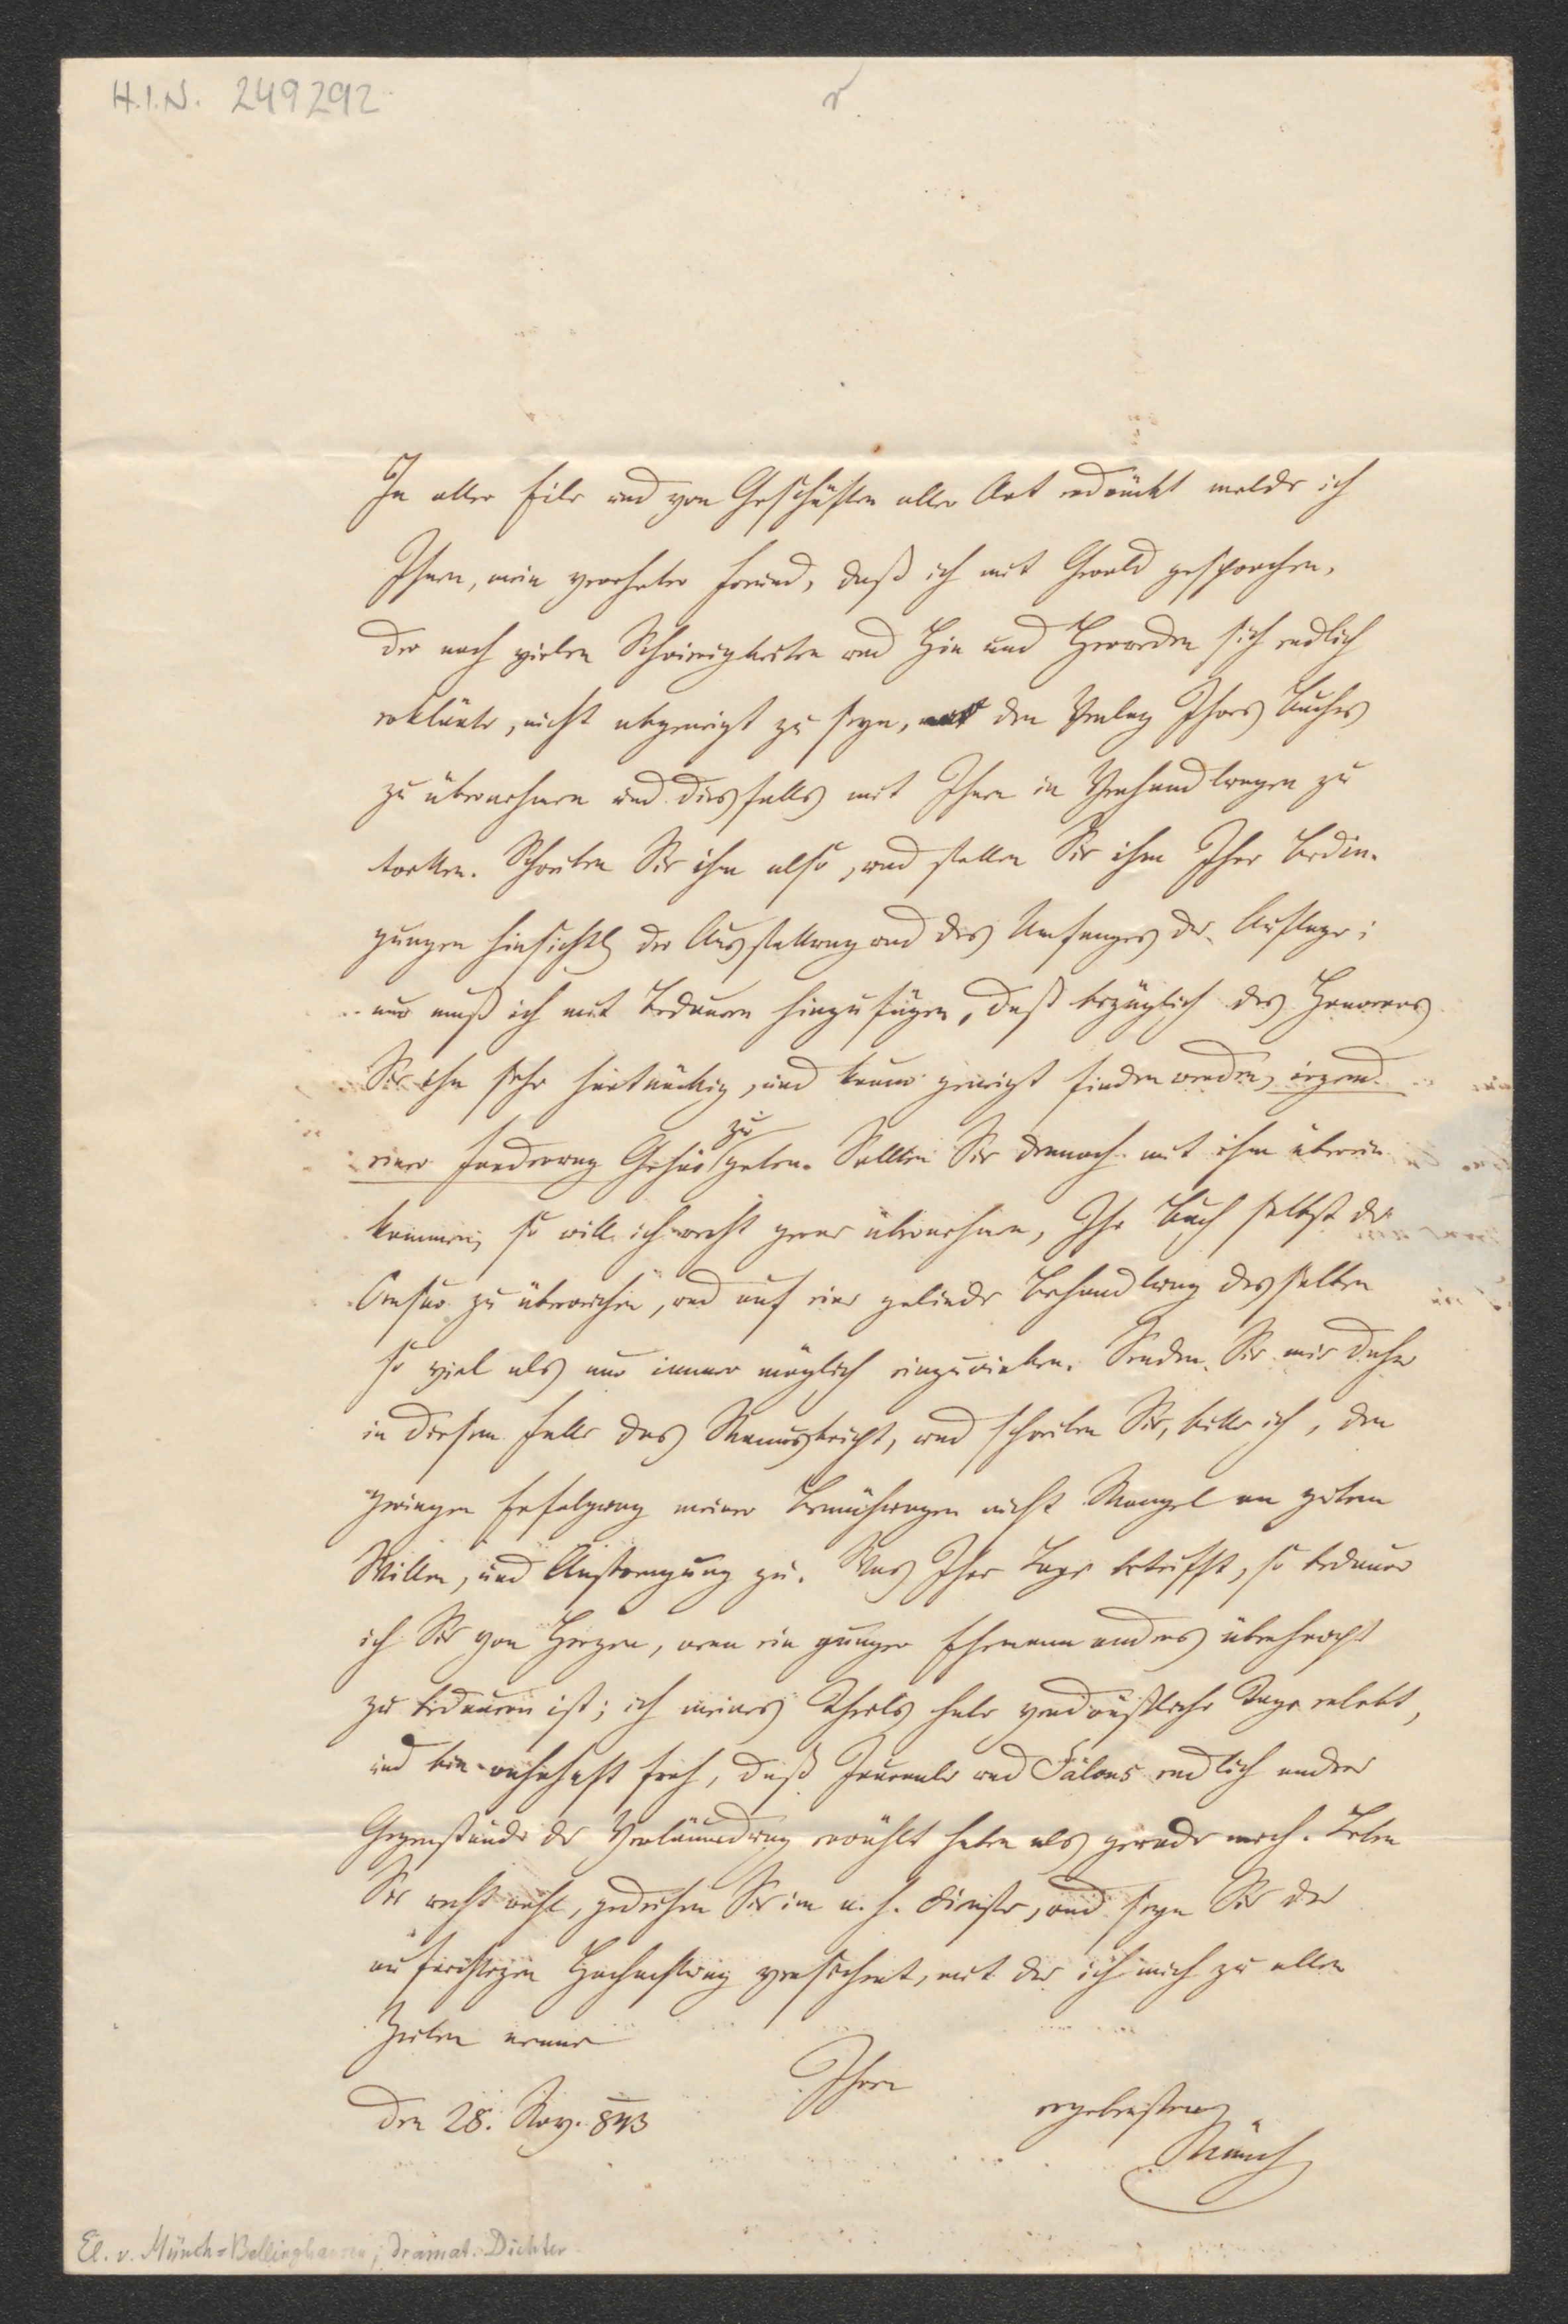 H.I.N. 249292
In aller Eile und von Geschäften aller Art erdrückt melde ich
Ihnen, mein verehrter Freund, daß ich mit Gerold gesprochen,
der nach vielen Schwierigkeiten und Hin und Herreden sich endlich
erklärte, nicht abgeneigt zu seyn, den Verlag Ihres Buches
zu übernehmen und diesfalls mit Ihnen in Verhandlungen zu
tretten. Schreiben Sie ihm also, und stellen Sie ihm Ihre Bedin-
gungen hinsichtl der Ausstattung und des Umfanges der Auflage;
nur muß ich mit Bedauern hinzufügen, daß bezüglich des Honorars
Sie ihn sehr hartnäckig, und kaum geneigt finden werden, irgend
einer Forderung Gehör zu geben. Sollten Sie dennoch mit ihm überein
kommen, so will ich recht gerne übernehmen, Ihr Buch selbst der
Censur zu überreichen, und auf eine gelinde Behandlung desselben
so viel als nur immer möglich einzuwirken. Senden Sie mir daher
in diesem Falle das Manuskript, und schreiben Sie, bitte ich, den
geringen Erfolg meiner Bemühungen nicht Mangel an gutem
Willen, und Anstrengung zu. Was Ihre Lage betrifft, so bedaure
ich Sie von Herzen, wenn ein junger Ehemann anders überhaupt
zu bedauern ist; ich meines Theils habe verdrüßliche Tage erlebt,
und bin wahrhaft froh, daß Journale und Salons endlich andere
Gegenstände der Verläumdung erwählt haben als gerade mich. Leben
Sie recht wohl, gedeihen Sie im a. h. Dienste, und seyn Sie der
aufrichtigen Hochachtung versichert, mit der ich mich zu allen
Zeiten nenne
Ihren
den 28. Nov. 843
ergebensten
Münch
El. v. Münch-Bellinghausen, dramat. Dichter